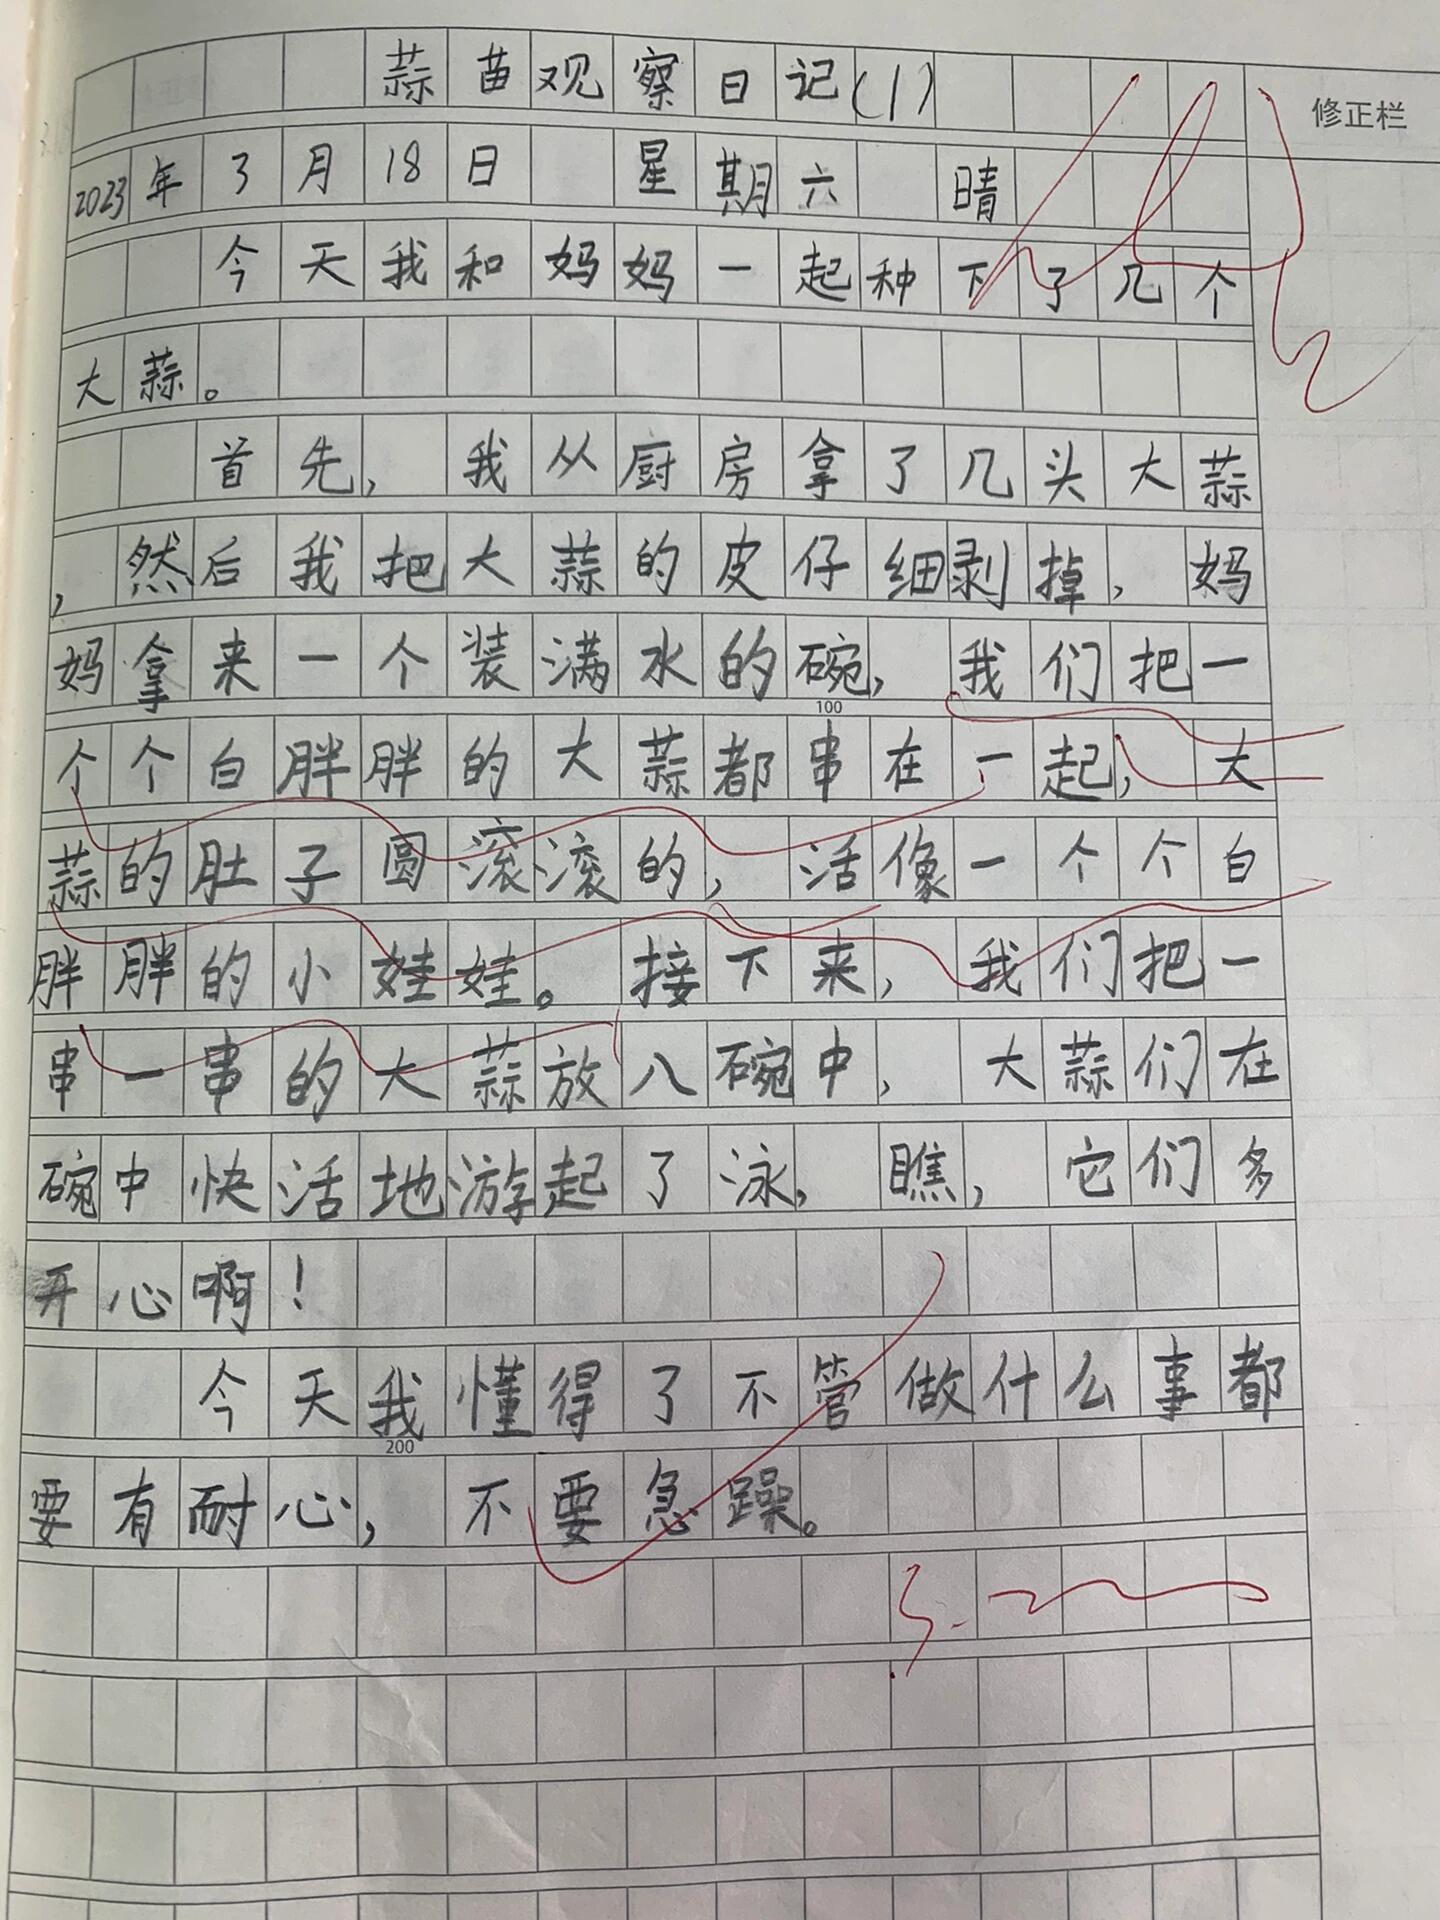 蒜苗观察日记(1)
修正栏
2023年3月18日 星期六 晴
今天我和妈妈一起种下了几个
大蒜。
首先，我从厨房拿了几头大蒜
，然后我把大蒜的皮仔细剥掉，妈
妈拿来一个装满水的碗，我们把一
100
个个白胖胖的大蒜都串在一起，大
蒜的肚子圆滚滚的，活像一个个白
胖胖的小娃娃。接下来，我们把一
串一串的大蒜放八碗中，大蒜们在
碗中快活地游起了泳，瞧，它们多
开心啊！
今天我懂得了不管做什么事都
200
要有耐心，不要急躁。